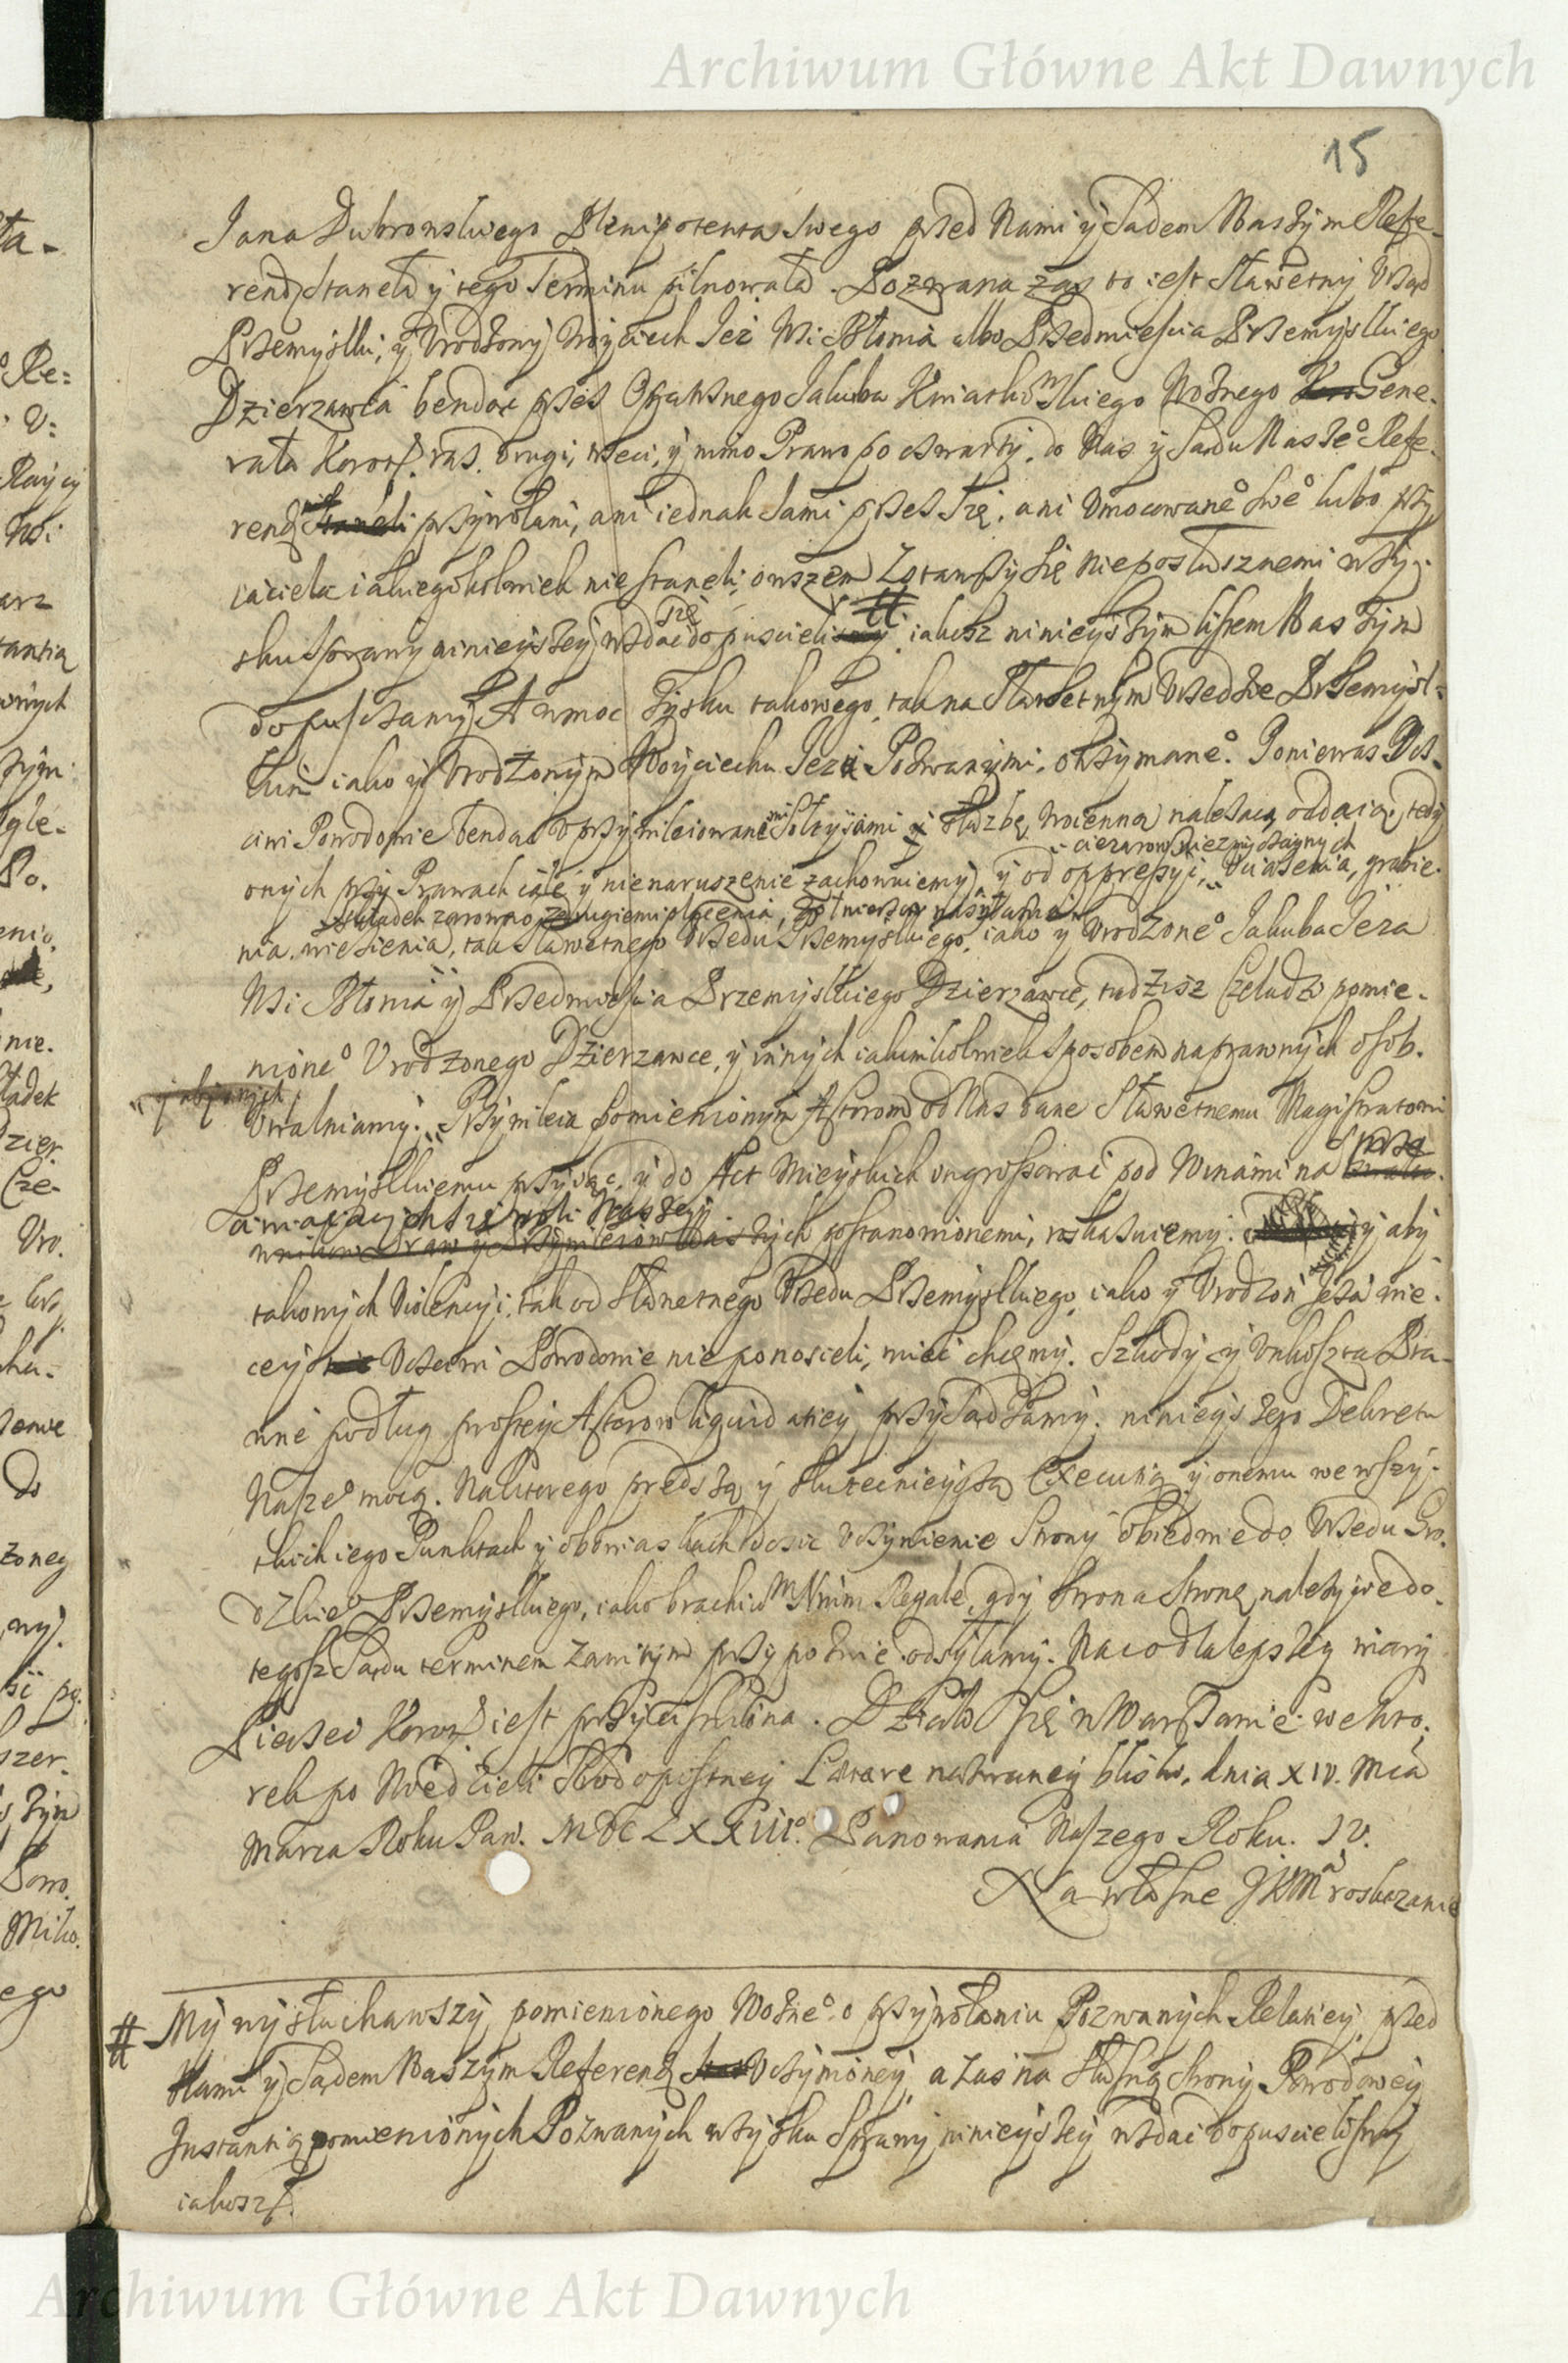 Archiwum Główne Akt Dawnych
15
Jana Dubrowskiego Plenipotenta swego przed Nami y Sądem Naszym Refe-
rend. stanęła y tego Terminu pilnowała. Pozwana zaś to iest Sławetny Urząd
Przemyslki, y Urodzony Woyciech Jeż Wsi Błonia albo Przedmieścia Przemyslkiego
Dzierzawca bendąc przes Opatrznego Jakuba Kwiatkowskiego Woźnego Gene-
rała Koron. raz, drugi, trzeci, y mimo Prawo po czwarty, do Nas y Sądu Naszego Refe-
rend. przywołani, ani iednak sami przes się, ani Umocowanego swego lubo przy-
iaciela iakiegokolwiek nie stanęli, owszem zstawszy się nieposłusznemi w zy-
sku sprawy ninieyszey wzdać się dopuścieli # iakosz ninieyszym listem Naszym
dopuszczamy. A w moc zysku takowego, tak na Sławetnym Urzędzie Przemysl-
kim iako y Urodzonym Woyciechu Jeżu Pozwanymi, otrzymanego. Ponieważ Ucz-
ciwi Powodowie bendąc uprzywileiowanemi Sołtysami służbę woienną należącą oddaią, tedy
onych przy Prawach cale y nienaruszenie zachowuiemy, y od oppressyi, uciążenia, grabie-
ciężarow niezwyczaynych
składek zarowno z drugiemi płacenia, żołnierzow nasyłania
nia, więzienia, tak Sławetnego Urzędu Przemyslkiego, iako y Urodzonego Jakuba Jeża
Wsi Błonia y Przedmieścia Przemyslkiego Dzierzawcę, tudziesz Czeladź pomie-
nionego Urodzonego Dzierzawce, y innych iakimkolwiek sposobem naprawnych osob
Uwalniamy. Przywileia pomienionym Aktorom od Nas dane Sławetnemu Magistratowi
Przemyslkiemu przyiąć, y do Act Mieyskich ingrossować pod Winami na sprze-
ciwiaiących się woli Naszey
postanowionemi, roskazuiemy: y aby
takowych Violencyi, tak od Sławetnego Urzędu Przemyslkiego, iako y Urodzon. Jeża wie-
cey Uczciwi Powodowie nie ponosieli, mieć chcemy. Szkody y Unkoszta Pra-
wne podług prostey Aktorow liquidatiey przysądzamy, ninieyszego Dekretu
Naszego mocą. Na ktorego prędszą y skutecznieyszą Executią y onemu we wszy-
stkich iego Punktach y obowiaskach dosic uczynienie Strony obiedwie do Urzędu Gro-
dzkiego Przemyslkiego, iako brachium Nrum Regale, gdy strona stronę należycie do
tegosz Sądu terminem zawitym przypozwie odsyłamy. Na co dla lepszey wiary
Pieczęć Koron. iest przyciśniona. Działo się w Warszawie we Wto-
rek po Niedzieli Srodopostney Laetare nazwaney blisko, dnia XIV. Mca
Marca Roku Pań. MDCLXXIII. Panowania Naszego Roku. IV.
Na własne JKMci roskazanie
# My wysłuchawszy pomienionego Woźnego o przywołaniu Pozwanych Relatiey, przed
Nami y Sądem Naszym Referend. Uczynioney, a zaś na słuszną Strony Powodowey
Instantią pomienionych Pozwanych w zysku sprawy ninieyszey wzdać dopuścielismy
iakosz.
Archiwum Główne Akt Dawnych